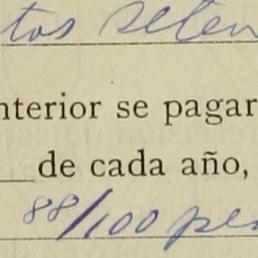 tos seten
nterior se pagar
de cada año,
88/100 pes